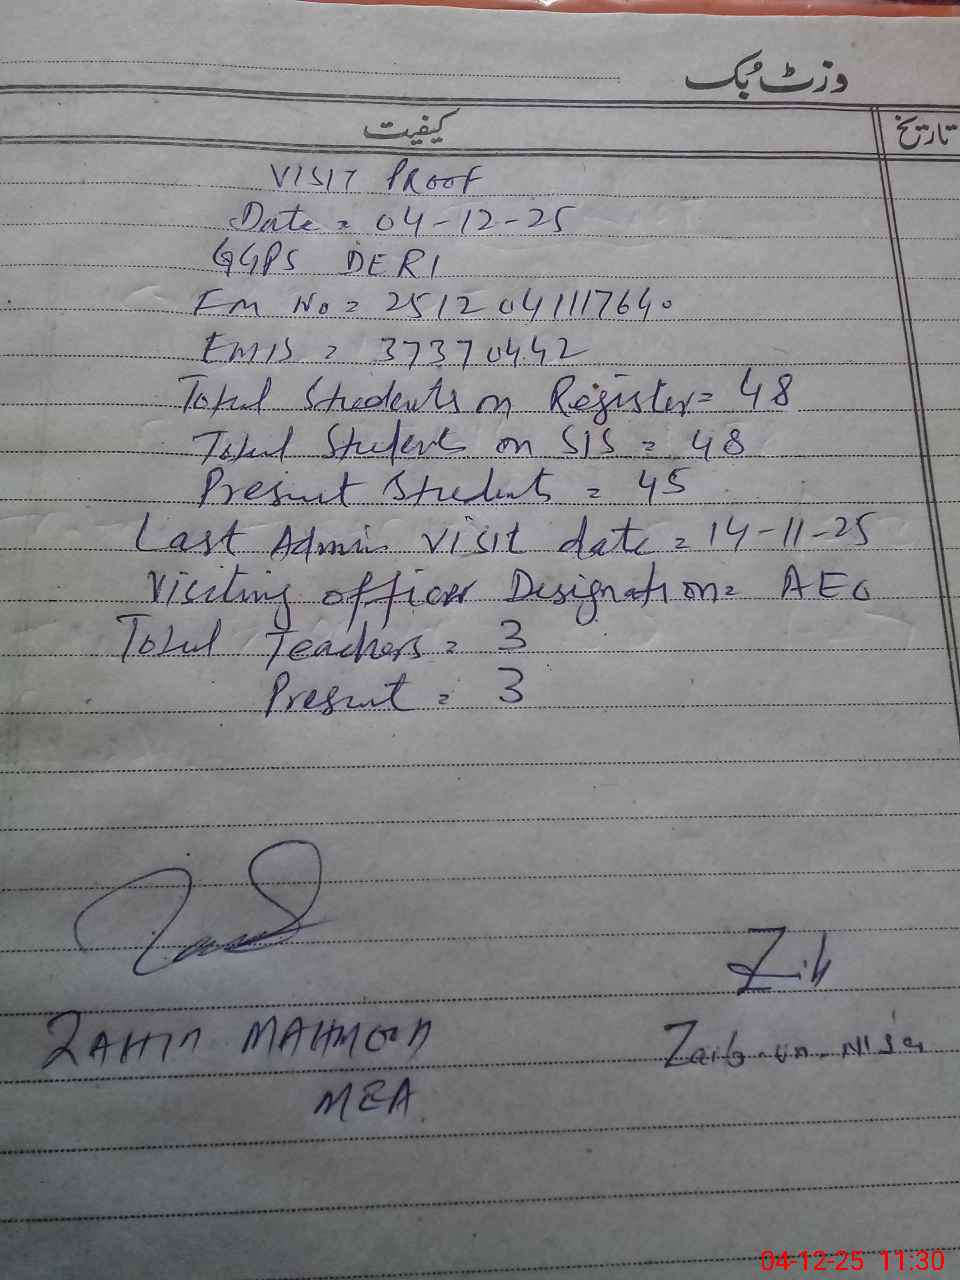 وزٹ بُک
تاریخ
کیفیت
VISIT PROOF
Date = 04-12-25
GGPS DERI
FM No = 2512041117640
EMIS = 37370442
Total Students on Register = 48
Total Students on SIS = 48
Present Students = 45
Last Admin visit date = 14-11-25
Visiting officer Designation = AEO
Total Teachers = 3
Present = 3
ZAHID MAHMOOD
MEA
Zaib-un-Nisa
04-12-25 11:30